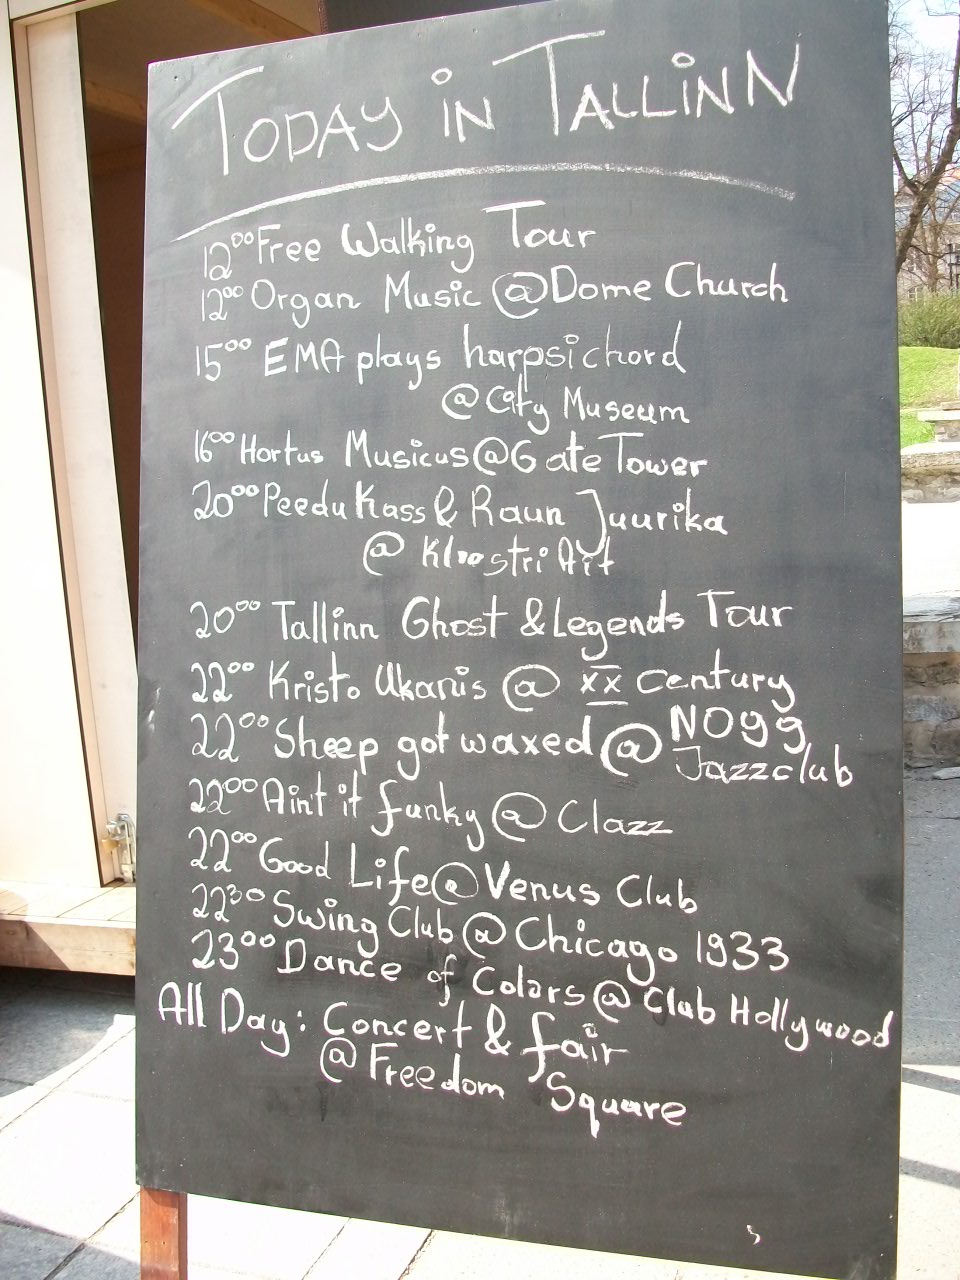 TODAY iN TALLiNN
12⁰⁰ Free Walking Tour
12⁰⁰ Organ Music @ Dome Church
15⁰⁰ EMA plays harpsichord
@ City Museum
16⁰⁰ Hortus Musicus @ Gate Tower
20⁰⁰ Peedu Kass & Raun Juurika
@ Kloostri Ait
20⁰⁰ Tallinn Ghost & Legends Tour
22⁰⁰ Kristo Ukanis @ XX century
22⁰⁰ Sheep got waxed @ NO99
Jazzclub
22⁰⁰ Ain't it funky @ Clazz
22⁰⁰ Good Life @ Venus Club
22³⁰ Swing Club @ Chicago 1933
23⁰⁰ Dance of Colors @ Club Hollywood
All Day: Concert & fair
@ Freedom Square